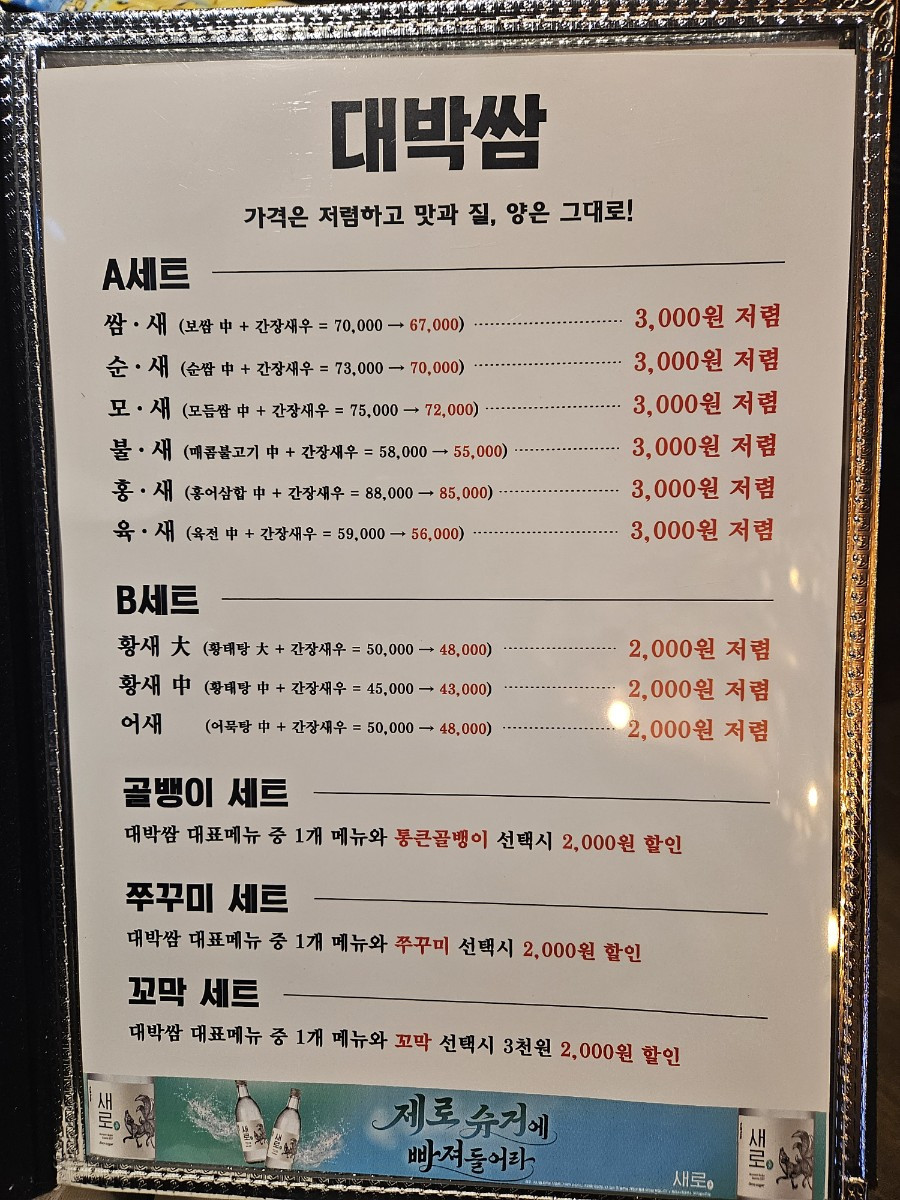 대박쌈
가격은 저렴하고 맛과 질, 양은 그대로!
A세트
쌈·새 (보쌈 中 + 간장새우 = 70,000 → 67,000) 3,000원 저렴
순·새 (순쌈 中 + 간장새우 = 73,000 → 70,000) 3,000원 저렴
모·새 (모듬쌈 中 + 간장새우 = 75,000 → 72,000) 3,000원 저렴
불·새 (매콤불고기 中 + 간장새우 = 58,000 → 55,000) 3,000원 저렴
홍·새 (홍어삼합 中 + 간장새우 = 88,000 → 85,000) 3,000원 저렴
육·새 (육전 中 + 간장새우 = 59,000 → 56,000) 3,000원 저렴
B세트
황새 大 (황태탕 大 + 간장새우 = 50,000 → 48,000) 2,000원 저렴
황새 中 (황태탕 中 + 간장새우 = 45,000 → 43,000) 2,000원 저렴
어새 (어묵탕 中 + 간장새우 = 50,000 → 48,000) 2,000원 저렴
골뱅이 세트
대박쌈 대표메뉴 중 1개 메뉴와 통큰골뱅이 선택시 2,000원 할인
쭈꾸미 세트
대박쌈 대표메뉴 중 1개 메뉴와 쭈꾸미 선택시 2,000원 할인
꼬막 세트
대박쌈 대표메뉴 중 1개 메뉴와 꼬막 선택시 3천원 2,000원 할인
새로
새로
새로
제로 슈거에
빠져들어라
새로
새로